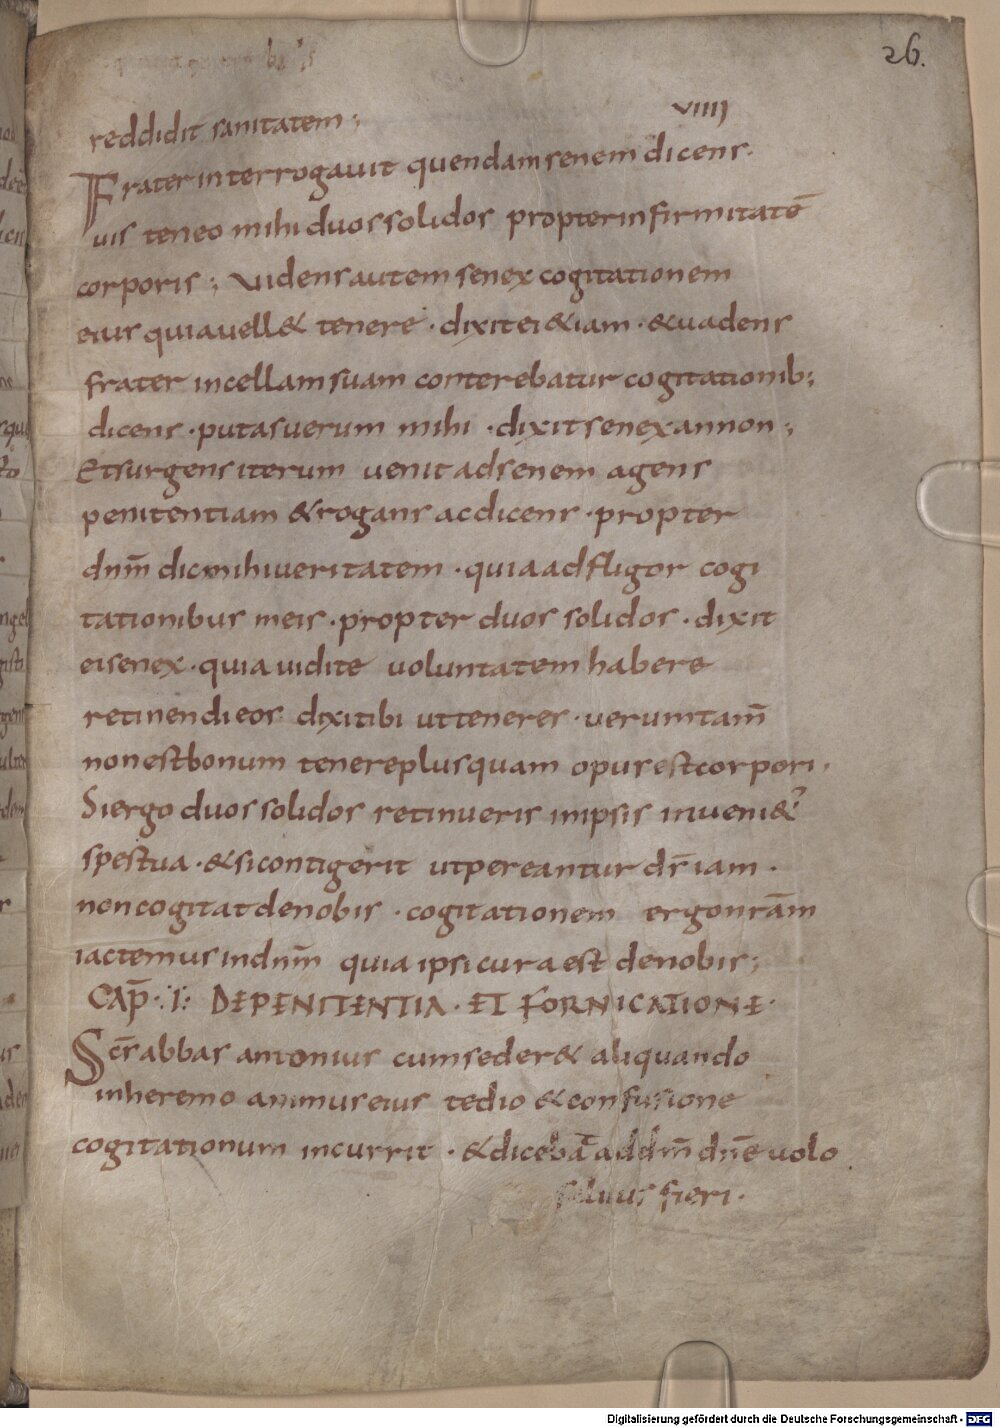 26.
reddidit sanitatem; VIIII
Frater interrogavit quendam senem dicens.
uis teneo mihi duos solidos propter infirmitatē
corporis; Uidens autem senex cogitationem
eius quia uell& tenere · dixit ei &iam · & uadens
frater in cellam suam conterebatur cogitationib;
dicens · putas uerum mihi · dixit senex an non;
Et surgens iterum uenit ad senem agens
penitentiam & rogans ac dicens · propter
dnm̄ dic mihi ueritatem · quia adfligor cogi
tationibus meis · propter duos solidos · dixit
ei senex · quia uidi te uoluntatem habere
retinendi eos dixi tibi ut teneres · uerumtam̄
non est bonum tenere plus quam opus est corpori.
Si ergo duos solidos retinueris in ipsis inueni&ʼ
spes tua · & si contigerit ut pereantur ds̄ iam ·
non cogitat de nobis · cogitationem ergo nrām
iactemus in dnm̄ quia ipsi cura est de nobis;
CAP̄· :I: DE PENITENTIA · ET FORNICATIONE·
Scs̄ abbas antonius cum seder& aliquando
in heremo animus eius tedio & confusione
cogitationum incurrit · & dicebā ad dnm̄ dnē uolo
saluus fieri·
Digitalisierung gefördert durch die Deutsche Forschungsgemeinschaft - DFG